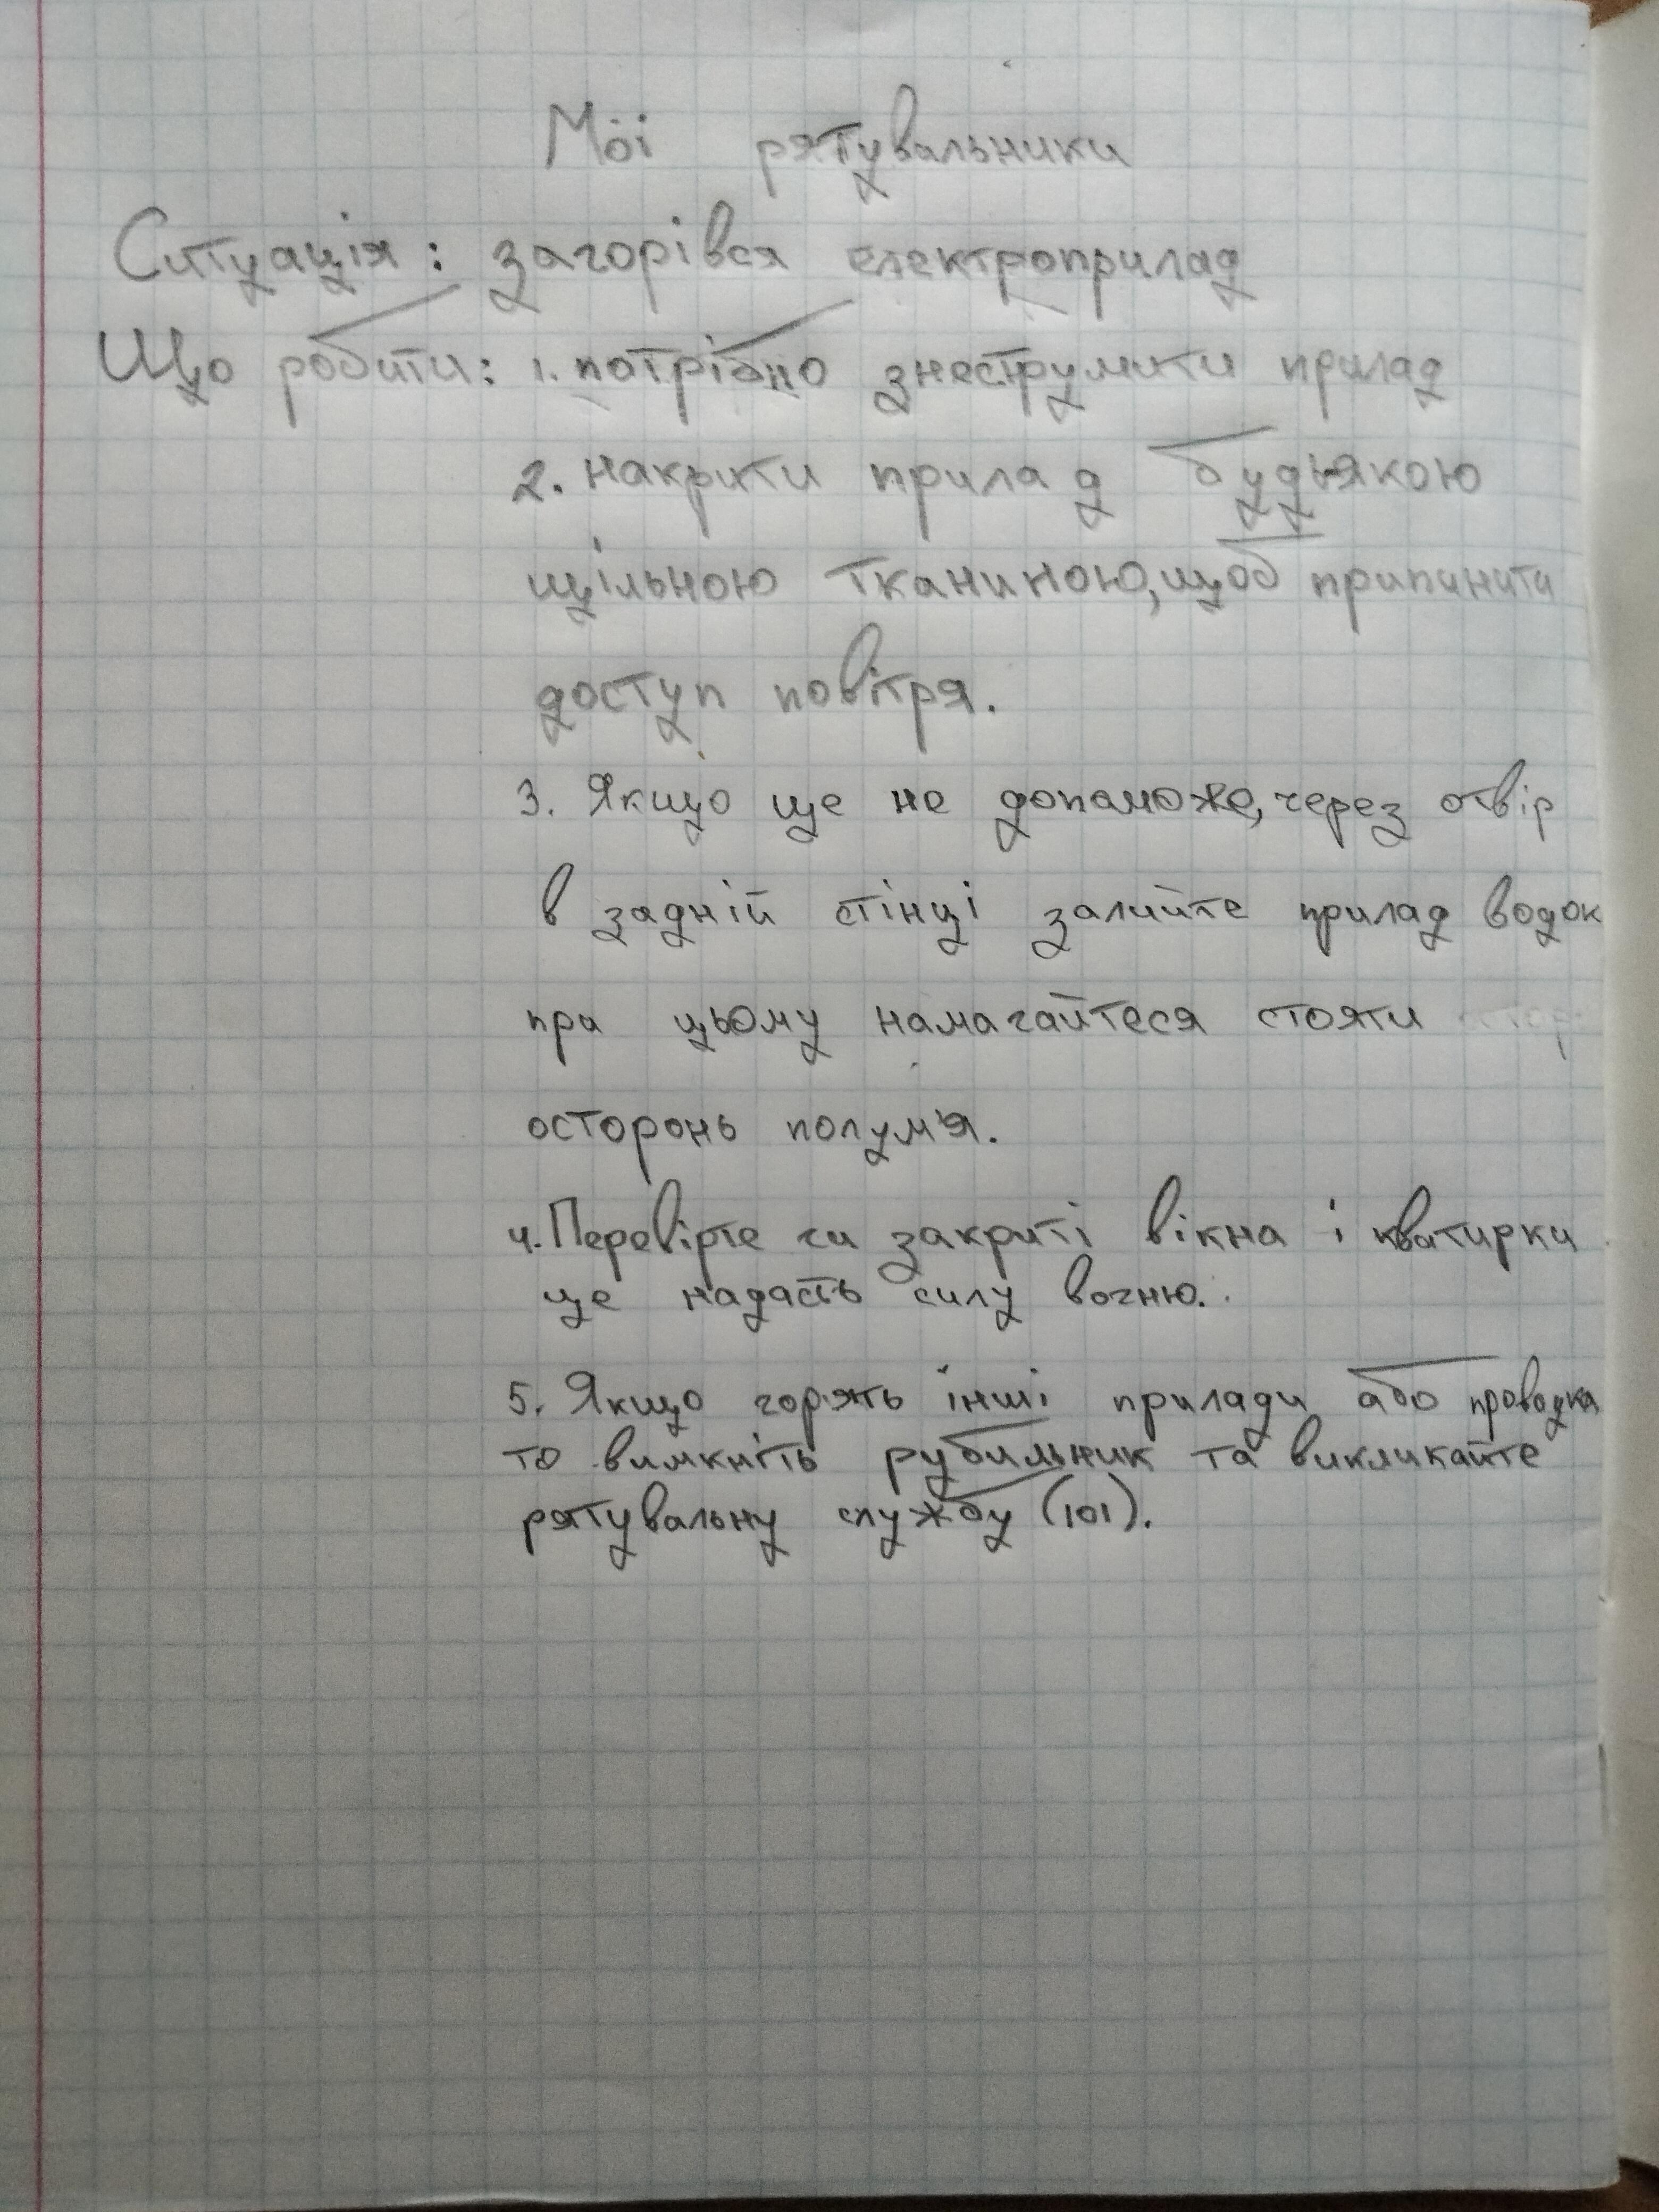 Мої рятувальники
Ситуація: загорівся електроприлад
Що робити: 1. потрібно знеструмити прилад
2. накрити прилад будь-якою
щільною тканиною, щоб припинити
доступ повітря.
3. Якщо це не допоможе, через отвір
в задній стінці залийте прилад водою
при цьому намагайтеся стояти
осторонь полум'я.
4. Перевірте чи закриті вікна і кватирки
це надасть силу вогню.
5. Якщо горять інші прилади або проводка
то вимкніть рубильник та викликайте
рятувальну службу (101).